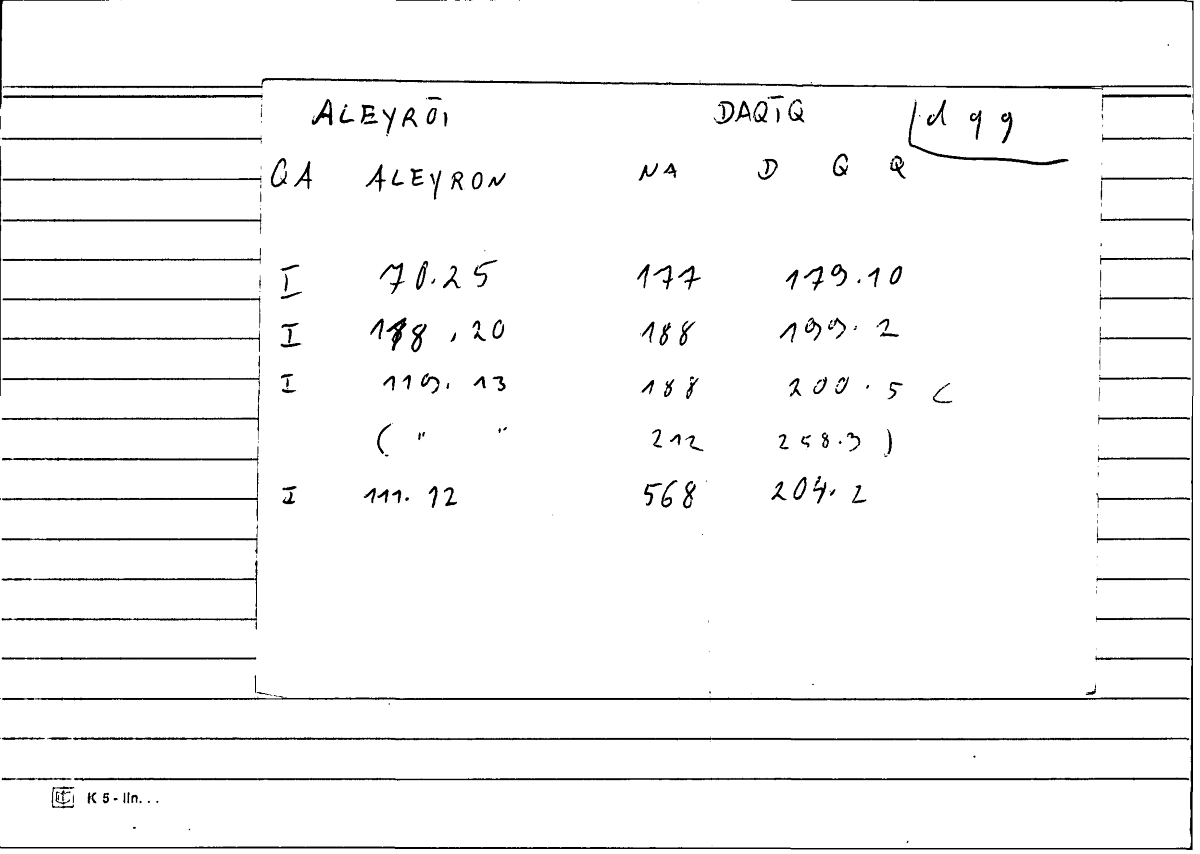 ALEYRŌI DAQĪQ d q q
QA ALEYRON NA D Q Q
I 70.25 177 179.10
I 188.20 188 199.2
I 119.13 188 200.5 <
( " " 212 258.3 )
II 111.12 568 204.2
K 5 - lin. . .